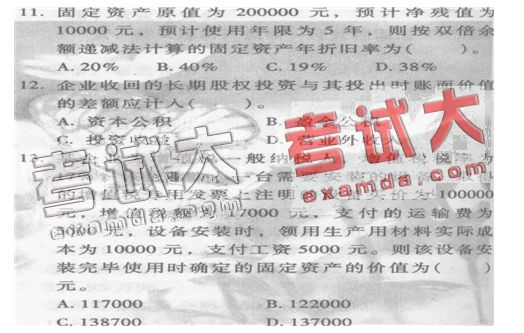 11. 固定资产原值为 200000 元，预计净残值为
10000 元，预计使用年限为 5 年，则按双倍余
额递减法计算的固定资产年折旧率为(　　)。
A. 20%　B. 40%　C. 19%　D. 38%
12. 企业收回的长期股权投资与其投出时账面价值
的差额应计入(　　)。
A. 资本公积　B. 盈余公积
C. 投资收益　D. 营业外收入
13. 一般纳税
一台需
用发票上注明 100000
元，增值税 17000 元，支付的运输费为
元，设备安装时，领用生产用材料实际成
本为 10000 元，支付工资 5000 元。则该设备安
装完毕使用时确定的固定资产的价值为(　　)
元。
A. 117000　B. 122000
C. 138700　D. 137000
考试大
examda.com
考试大
examda.com